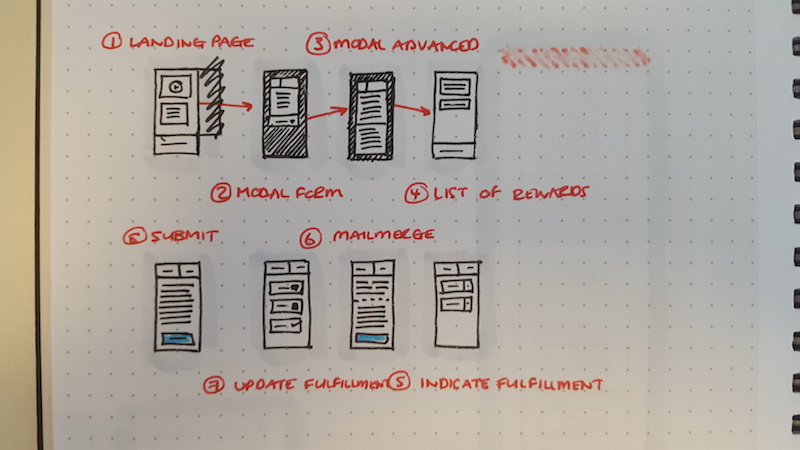 ① LANDING PAGE
③ MODAL ADVANCED
② MODAL FORM
④ LIST OF REWARDS
⑧ SUBMIT
⑥ MAILMERGE
⑦ UPDATE FULFILLMENT
⑤ INDICATE FULFILLMENT